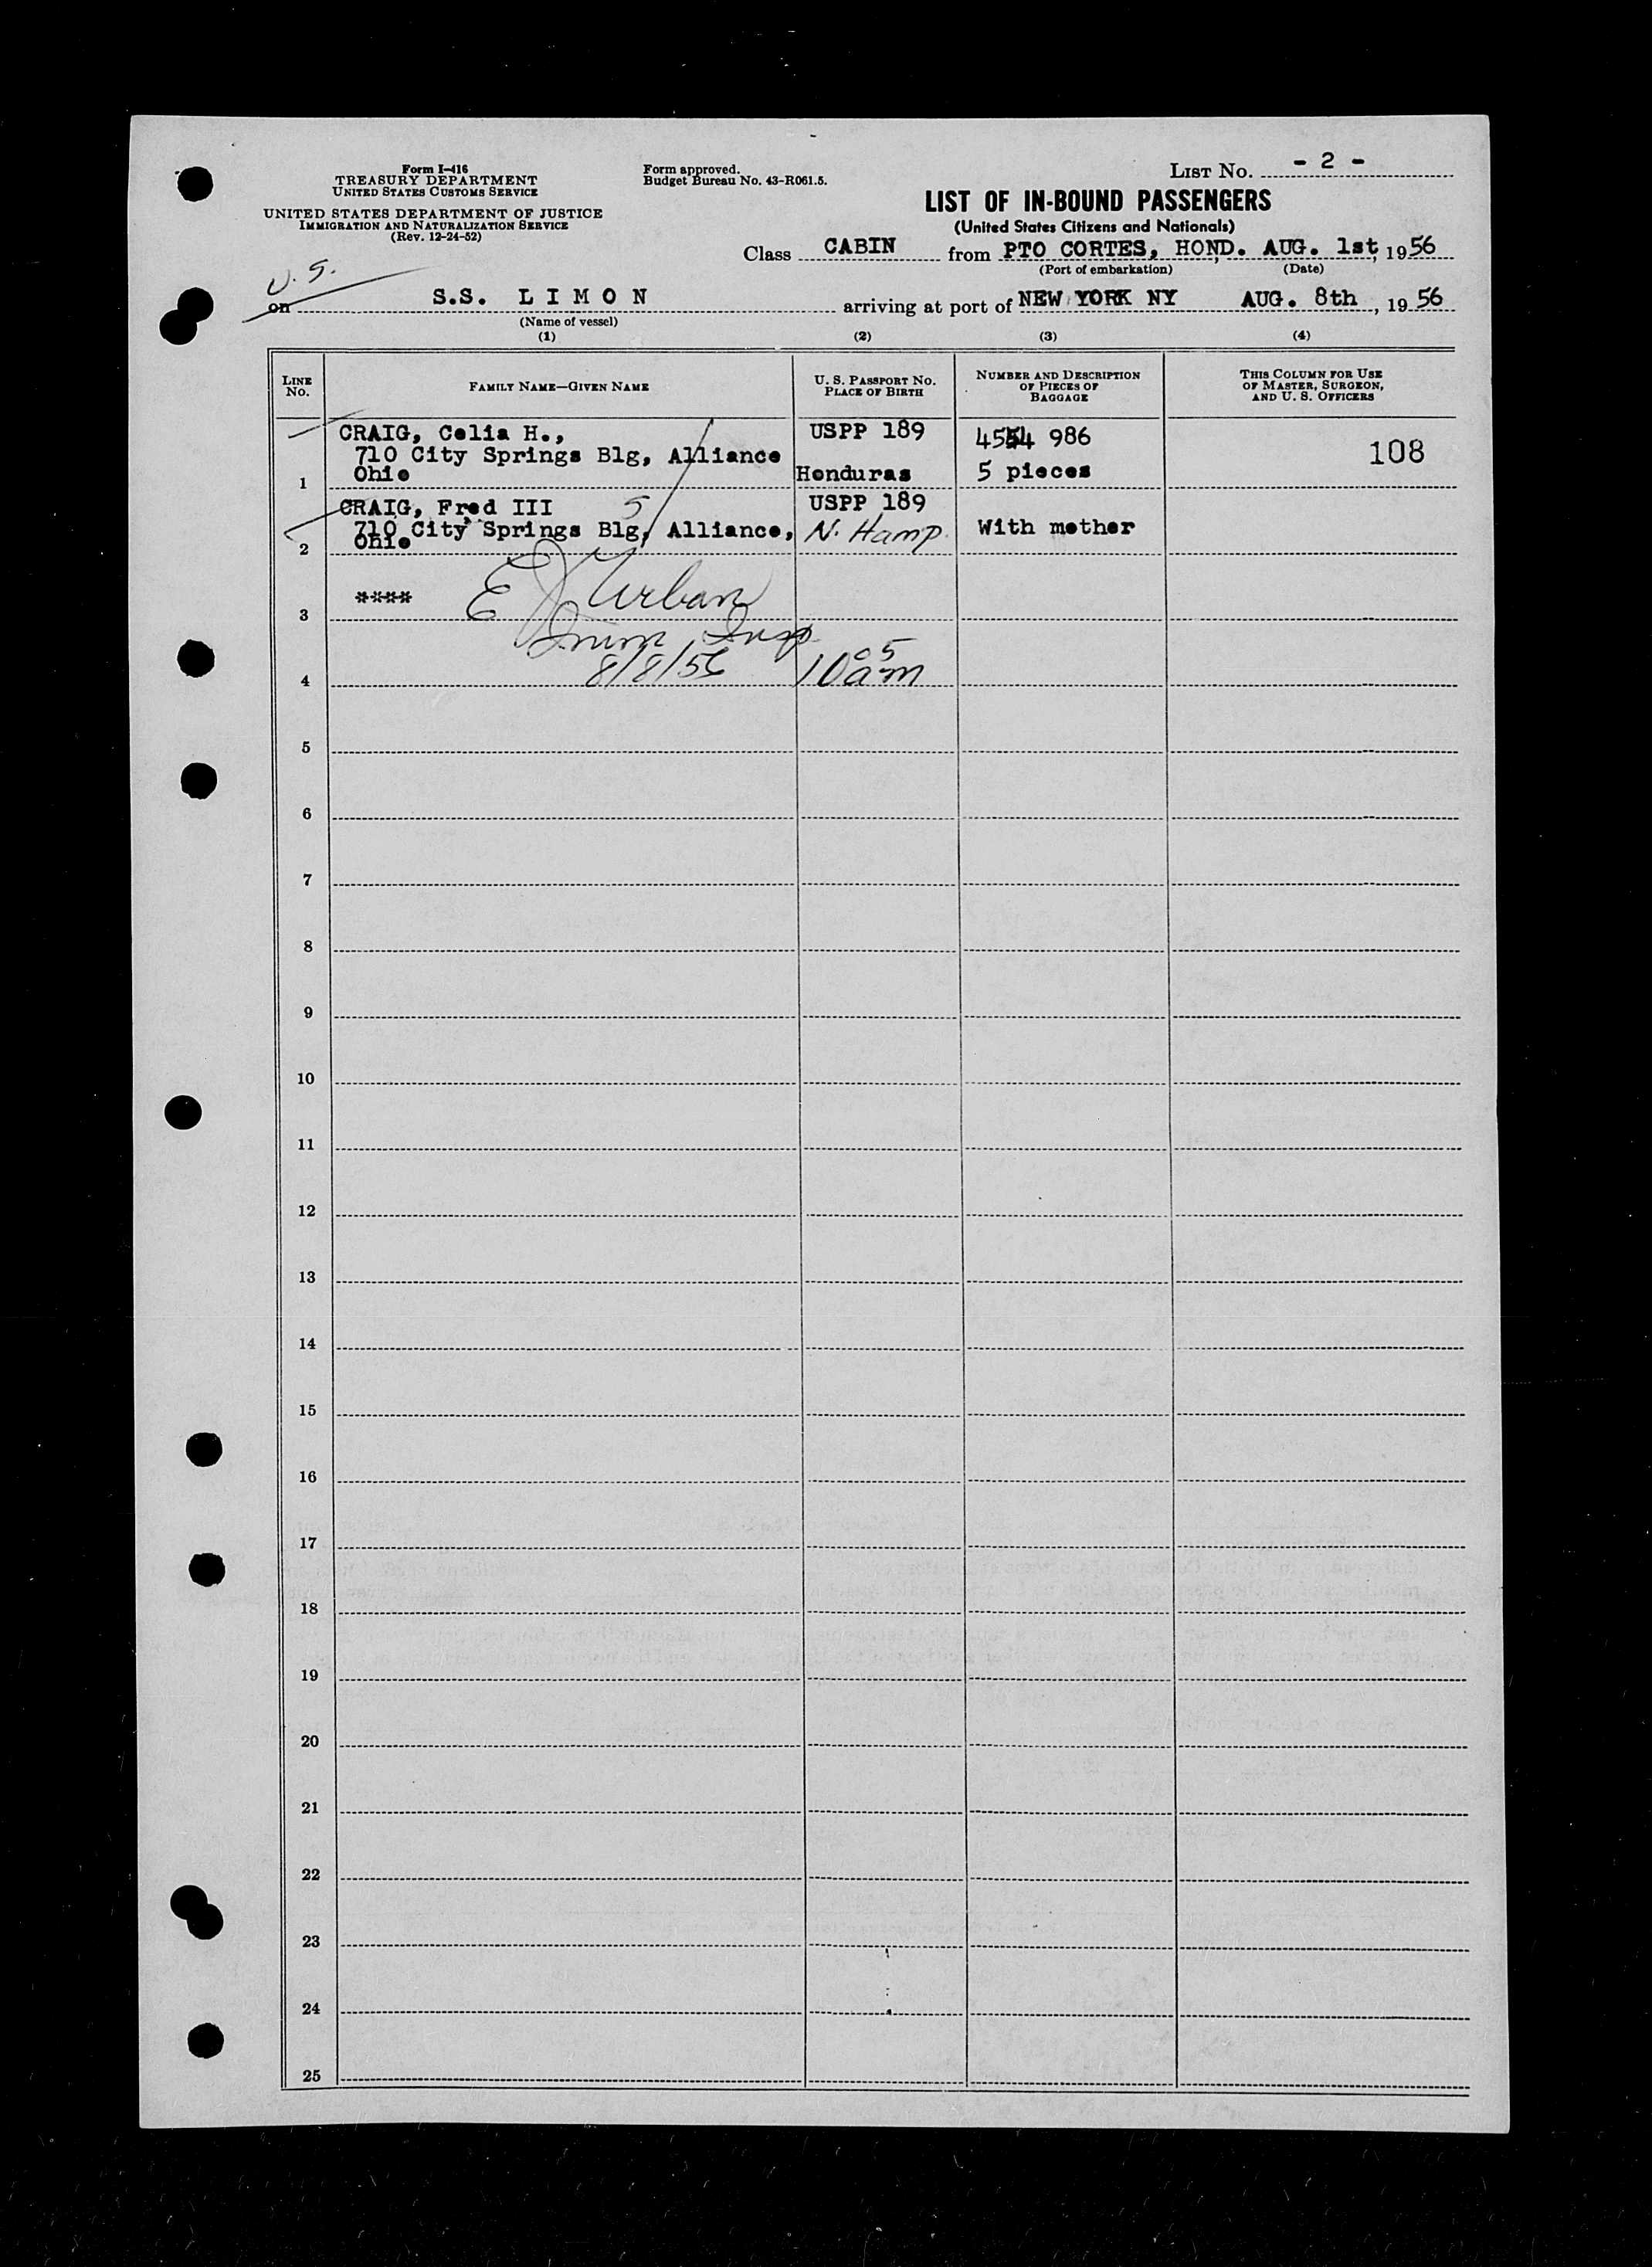 Form I-416
TREASURY DEPARTMENT
UNITED STATES CUSTOMS SERVICE
UNITED STATES DEPARTMENT OF JUSTICE
IMMIGRATION AND NATURALIZATION SERVICE
(Rev. 12-24-52)
Form approved.
Budget Bureau No. 43-R061.5.
LIST No. - 2 -
LIST OF IN-BOUND PASSENGERS
(United States Citizens and Nationals)
Class CABIN from PTO CORTES, HOND. AUG. 1st, 1956
(Port of embarkation) (Date)
U. S.
on S.S. L I M O N arriving at port of NEW YORK NY AUG. 8th, 1956
(Name of vessel)
(1) (2) (3) (4)
LINE No. FAMILY NAME—GIVEN NAME U. S. PASSPORT No. PLACE OF BIRTH NUMBER AND DESCRIPTION OF PIECES OF BAGGAGE THIS COLUMN FOR USE OF MASTER, SURGEON, AND U. S. OFFICERS
CRAIG, Celia H., USPP 189 986
710 City Springs Blg, Alliance 108
1 Ohio Honduras 5 pieces
CRAIG, Fred III 5 USPP 189
710 City Springs Blg, Alliance, N. Hamp. With mother
2 Ohio
**** E J Urban
3
Imm Insp
4 8/8/56 10 05 am
5
6
7
8
9
10
11
12
13
14
15
16
17
18
19
20
21
22
23
24
25